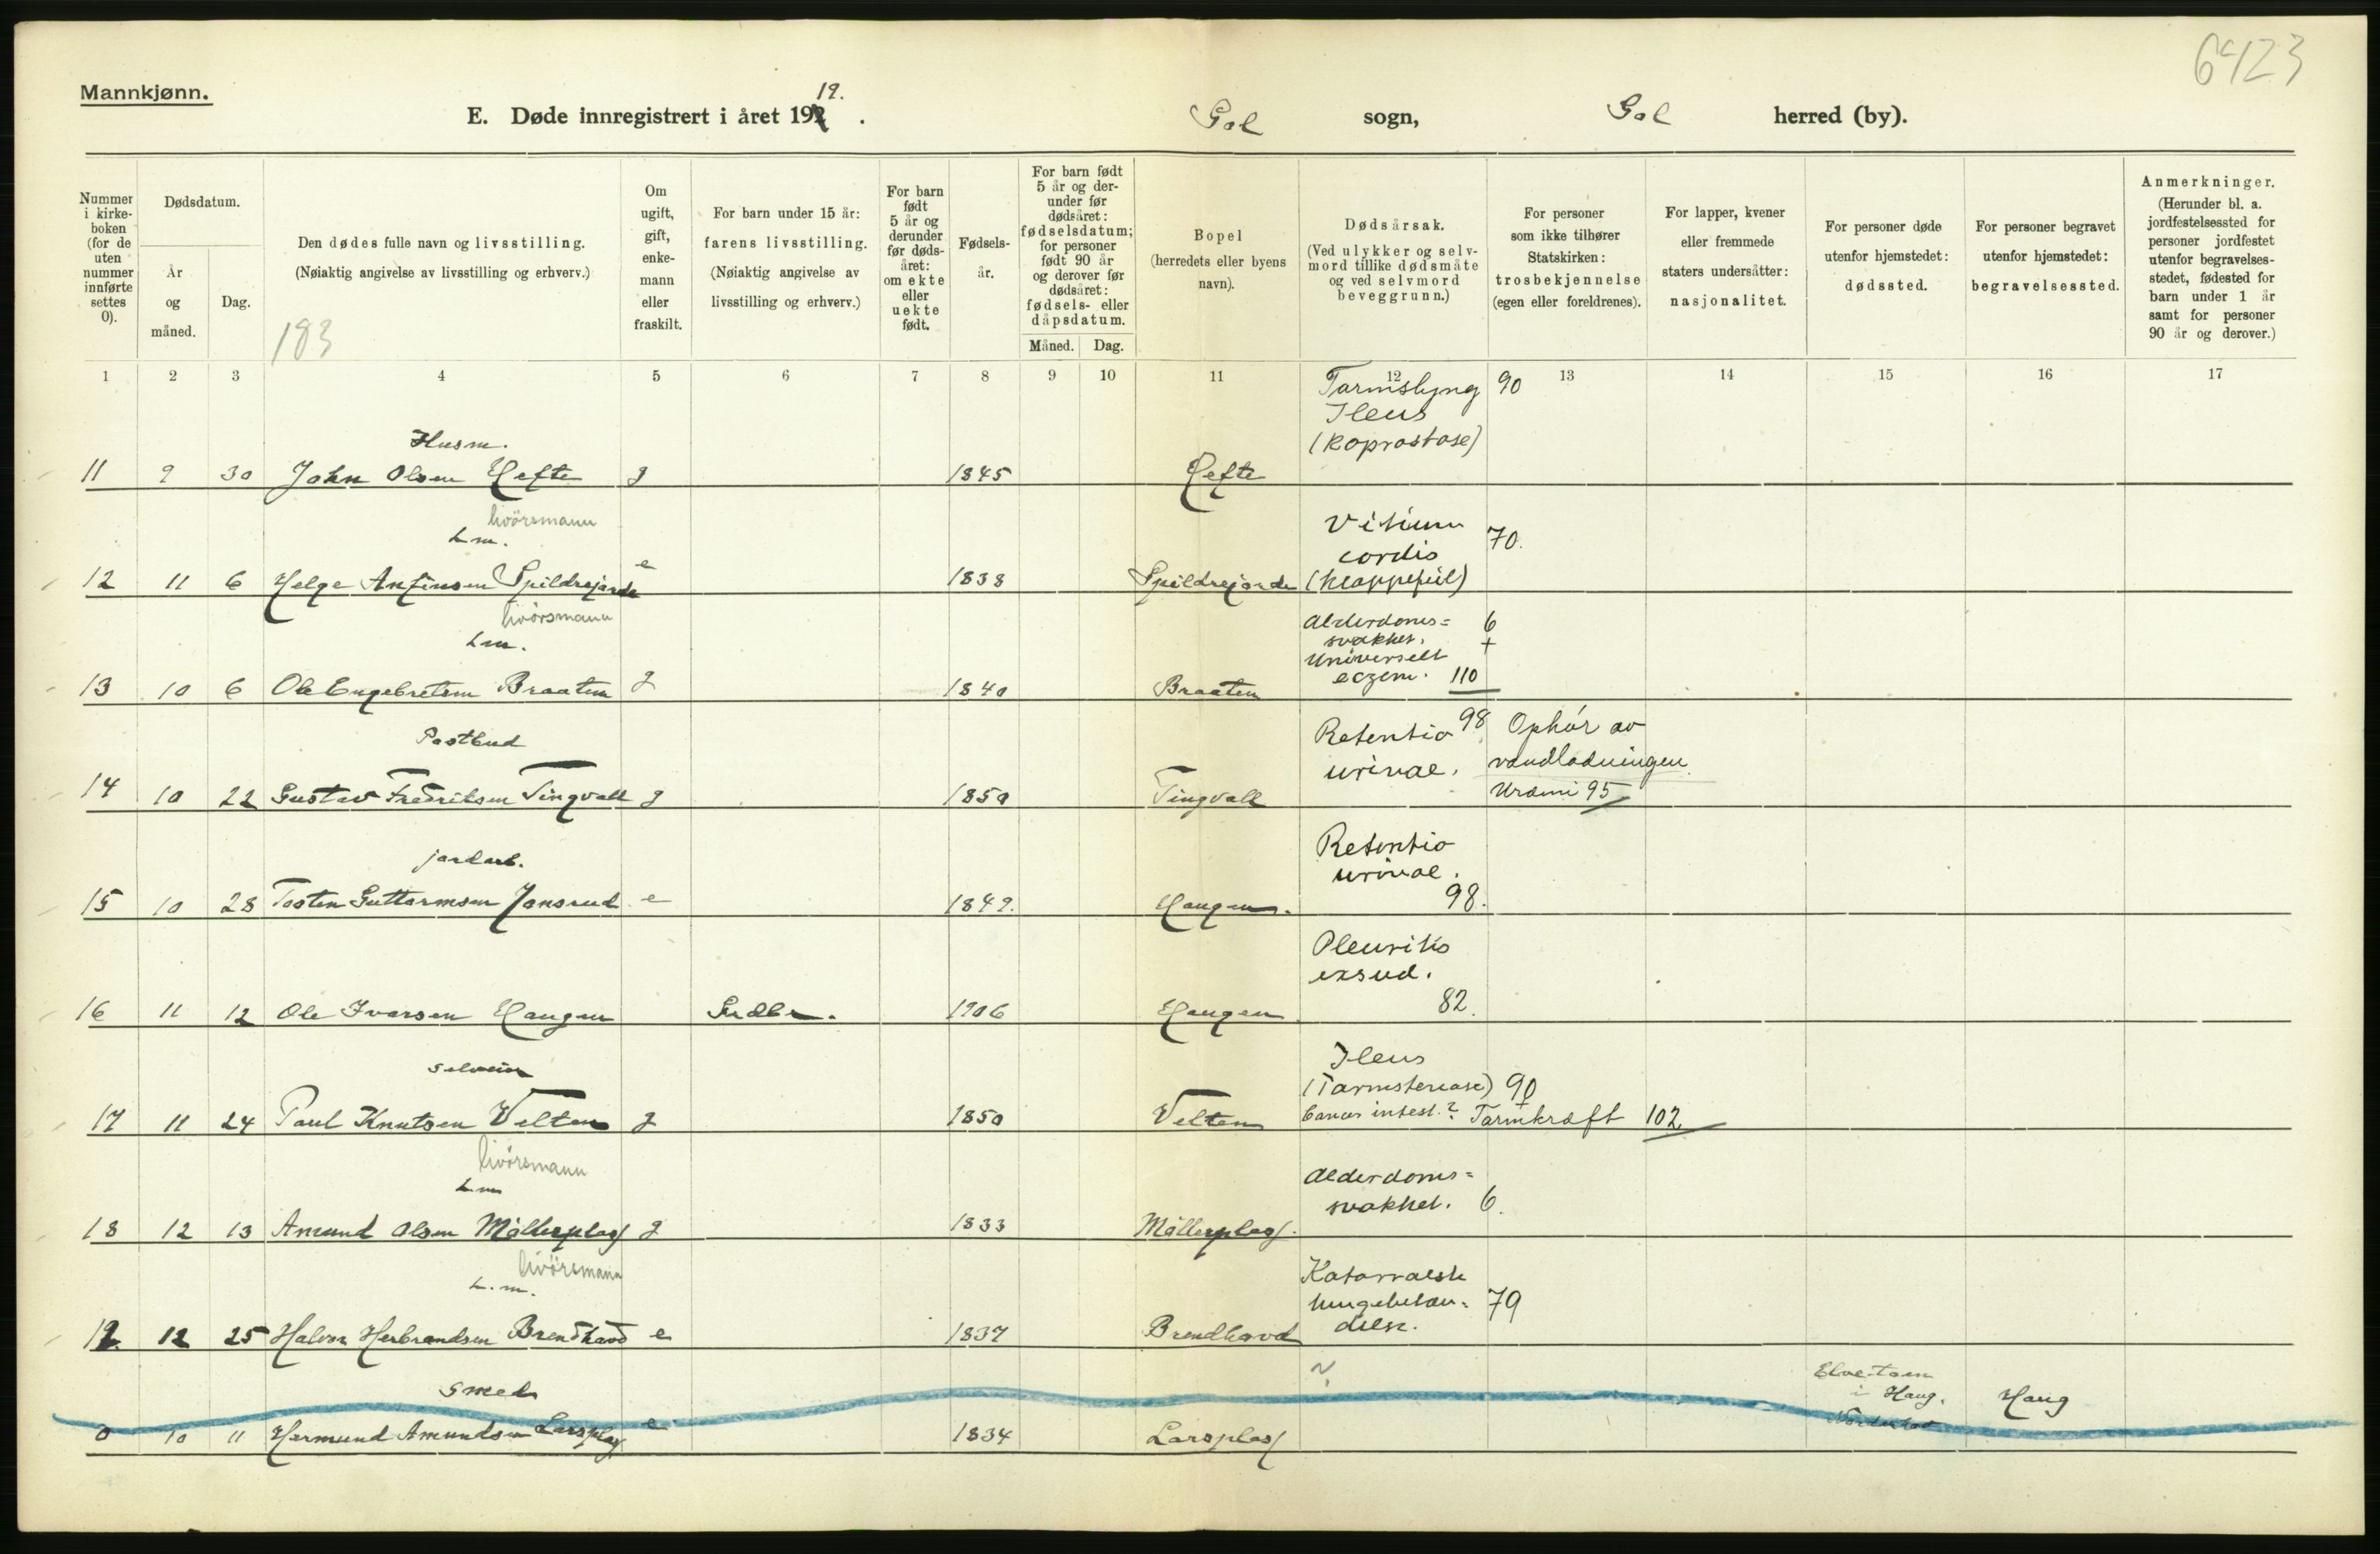 6423
Mannkjønn.
E. Døde innregistrert i året 192 19.
Gol sogn, Gol herred (by).
Nummer i kirkeboken (for de uten nummer innførte settes 0).
Dødsdatum.
År og måned.
Dag.
Den dødes fulle navn og livsstilling.
(Nøiaktig angivelse av livsstilling og erhverv.)
183
Om ugift, gift, enkemann eller fraskilt.
For barn under 15 år: farens livsstilling.
(Nøiaktig angivelse av livsstilling og erhverv.)
For barn født 5 år og derunder før dødsåret: om ekte eller uekte født.
Fødselsår.
For barn født 5 år og derunder før dødsåret: fødselsdatum; for personer født 90 år og derover før dødsåret: fødsels- eller dåpsdatum.
Måned. Dag.
Bopel
(herredets eller byens navn).
Dødsårsak.
(Ved ulykker og selvmord tillike dødsmåte og ved selvmord beveggrunn.)
For personer som ikke tilhører Statskirken: trosbekjennelse (egen eller foreldrenes).
For lapper, kvener eller fremmede staters undersåtter: nasjonalitet.
For personer døde utenfor hjemstedet: dødssted.
For personer begravet utenfor hjemstedet: begravelsessted.
Anmerkninger.
(Herunder bl. a. jordfestelsessted for personer jordfestet utenfor begravelsesstedet, fødested for barn under 1 år samt for personer 90 år og derover.)
1 2 3 4 5 6 7 8 9 10 11 12 13 14 15 16 17
Husm.
11 9 30 John Olsen Hefte g 1845 Hefte
Tarmslyng 90
Ileus
(Koprostase)
livörsmann
L m.
12 11 6 Helge Anfinsen Spildrejorde e 1838 Spildrejorde
Vitium
cordis 70.
(klappefeil)
livörsmann
L m.
13 10 6 Ole Engebretsen Braaten g 1840 Braaten
Alderdoms= 6
svakhet. +
Universelt
eczem. 110
Postbud
14 10 22 Gustav Fredriksen Tingvall g 1850 Tingvall
Retentio 98 Ophör av
urinae. vandladningen
Uræmi 95
jordarb.
15 10 28 Tosten Guttormsen Jonsrud e 1849. Haugen.
Retentio
urinae.
98.
16 11 12 Ole Ivarsen Haugen Grdbr. 1906 Haugen
Pleuritis
exsud.
82.
selveier
17 11 24 Paul Knutsen Velten g 1850 Velten
Ileus
(Tarmstenose) 90
+
Cancer intest.? Tarmkræft 102
livörsmann
L m
18 12 13 Amund Olsen Möllerplass g 1833 Möllerplass.
Alderdoms=
svakhet. 6.
livörsmann
L. m.
19 12 25 Halvor Herbrandsen Brendhovd e 1837 Brendhovd
Katarralsk
lungebetæn= 79
delse.
Smed
0 10 11 Hermund Amundsen Larsplass e 1834 Larsplass
?
Elvetoen
i Haug.
Norderhov
Haug